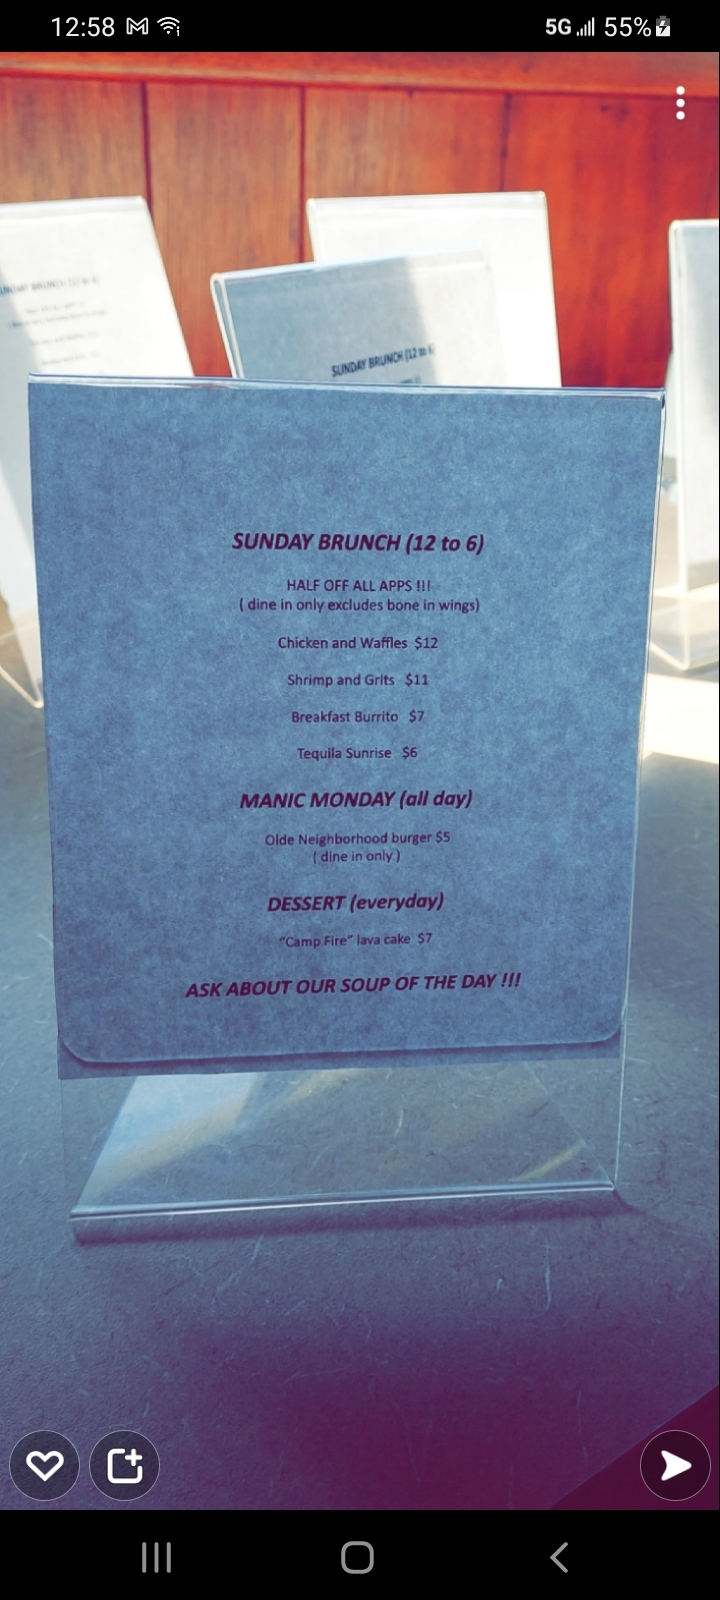 12:58
5G 55%
SUNDAY BRUNCH (12 to 6)
SUNDAY BRUNCH (12 to 6)
SUNDAY BRUNCH (12 to 6)
HALF OFF ALL APPS !!!
( dine in only excludes bone in wings)
Chicken and Waffles $12
Shrimp and Grits $11
Breakfast Burrito $7
Tequila Sunrise $6
MANIC MONDAY (all day)
Olde Neighborhood burger $5
( dine in only )
DESSERT (everyday)
"Camp Fire" lava cake $7
ASK ABOUT OUR SOUP OF THE DAY !!!